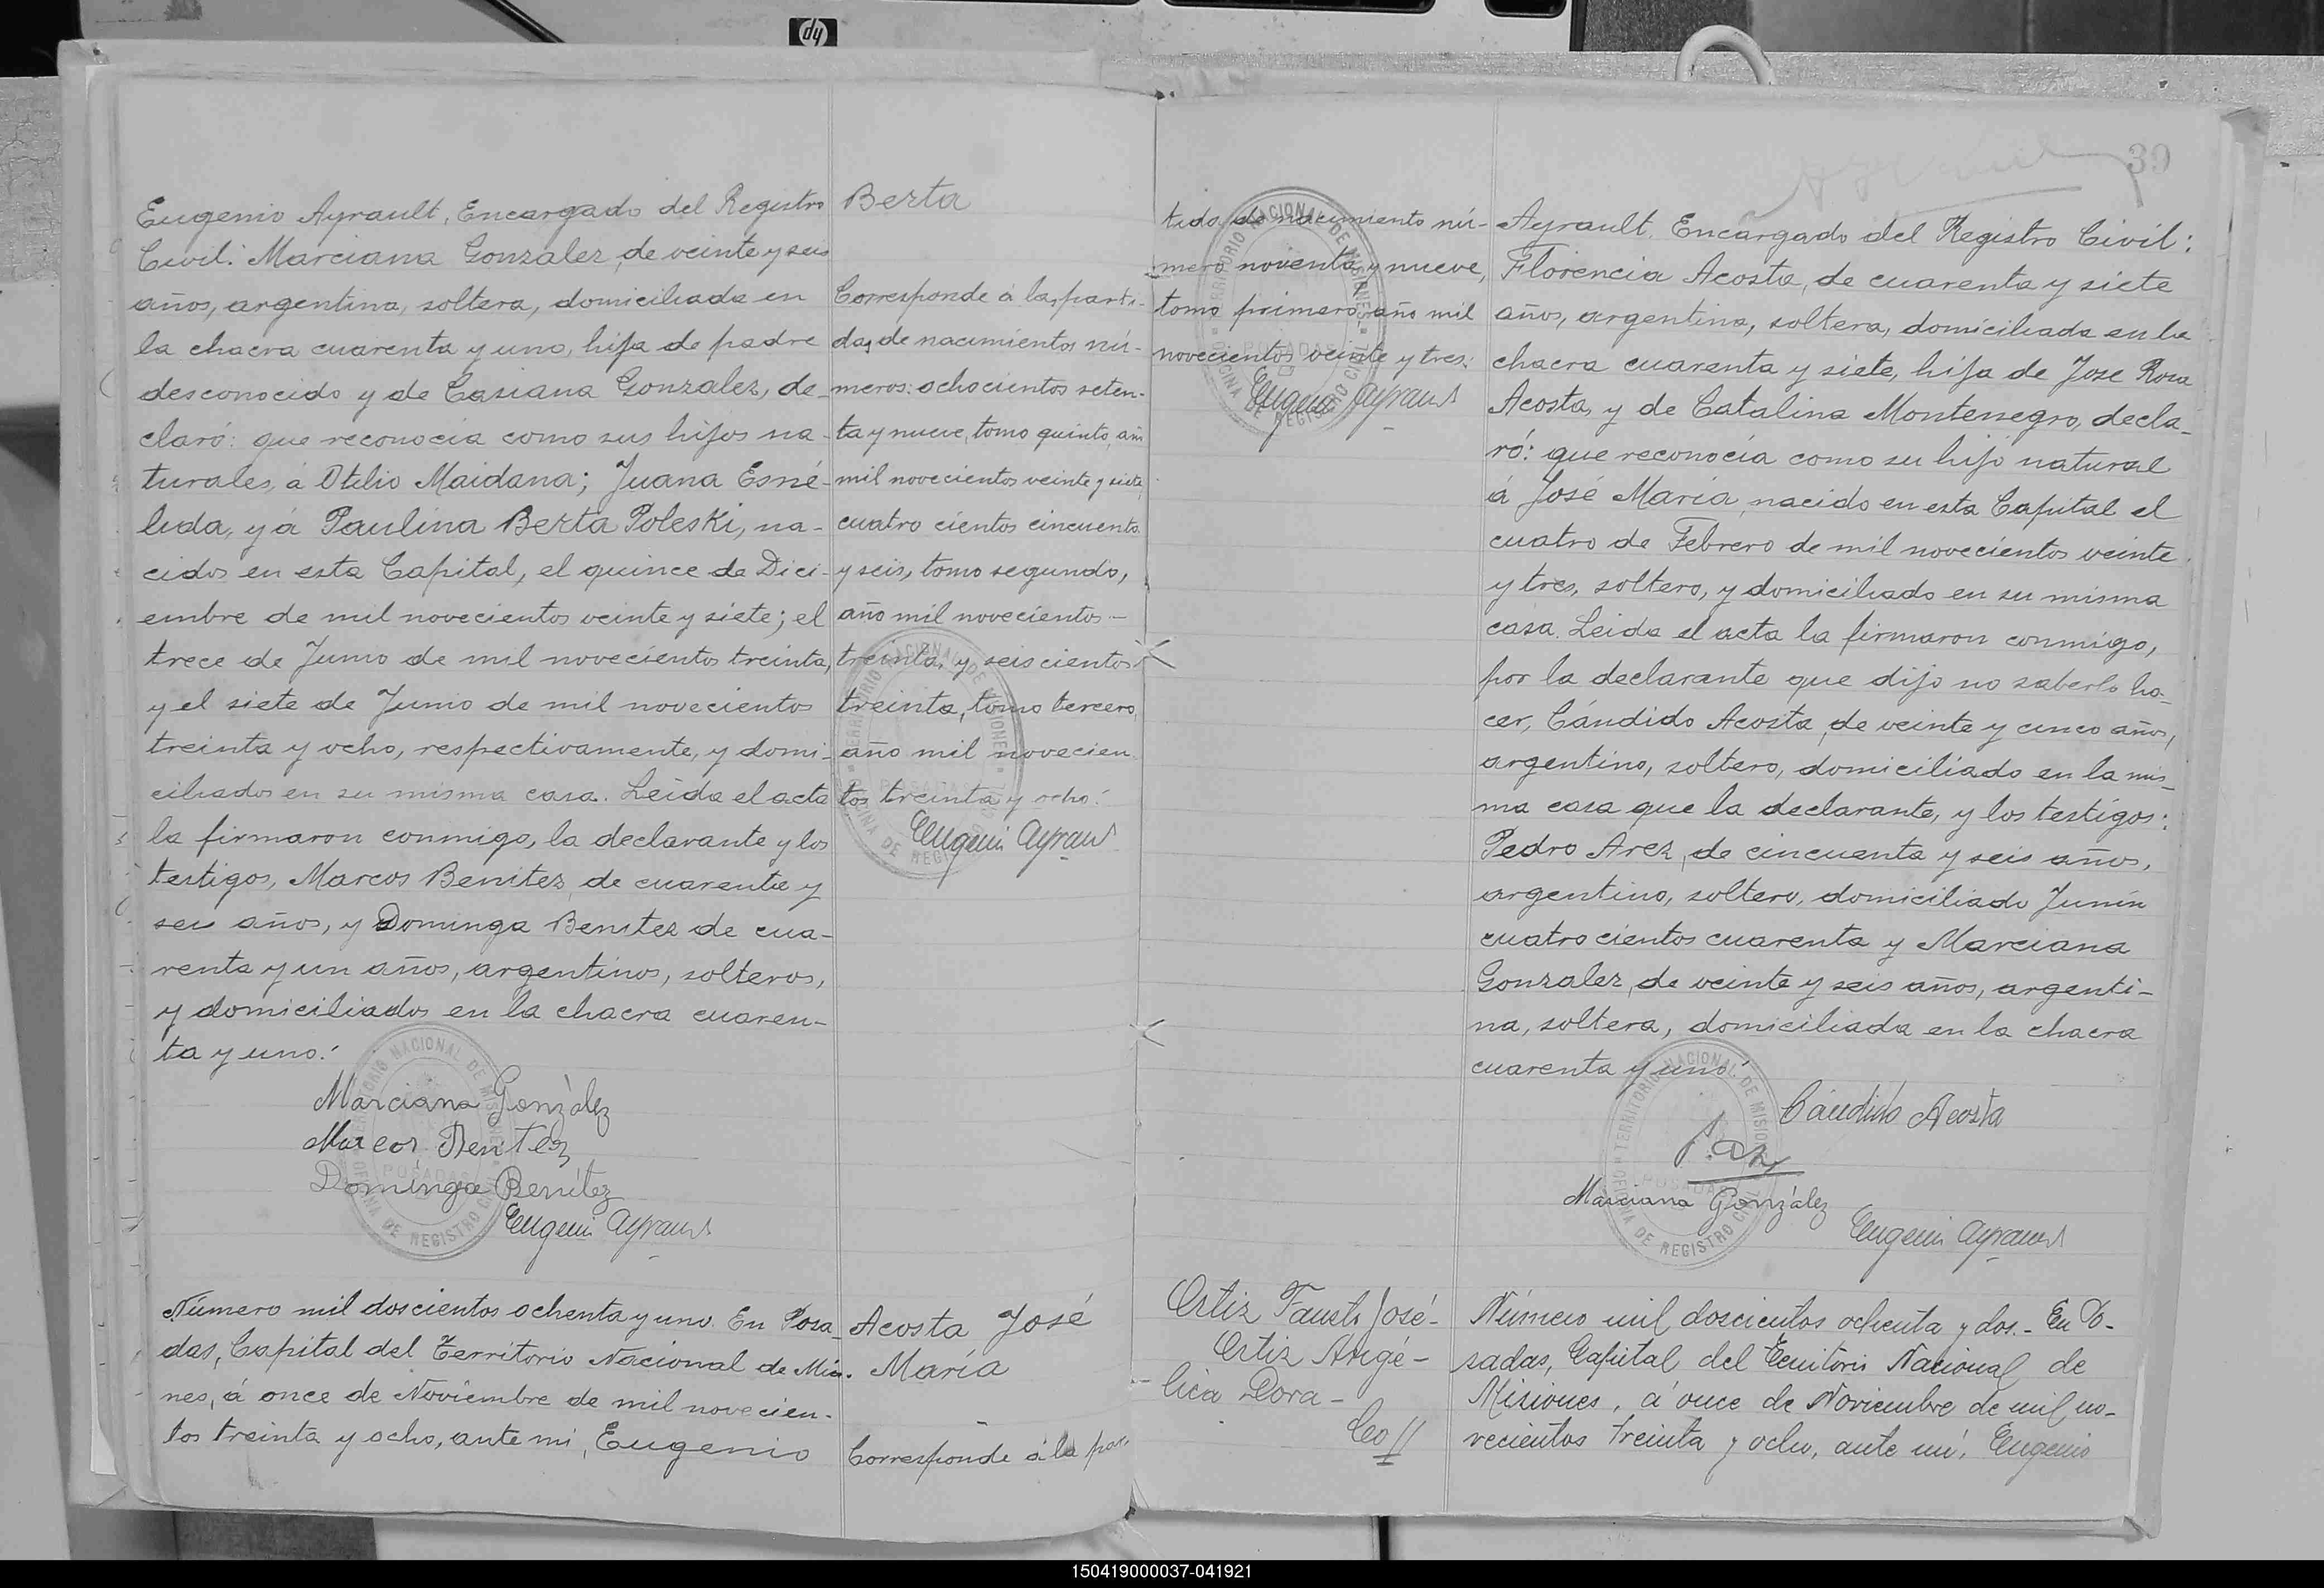 Eugenio Ayrault, Encargado del Registro
Civil: Marciana Gonzalez, de veinte y seis
años, argentina, soltera, domiciliada en
la chacra cuarenta y uno, hija de padre
desconocido y de Casiana Gonzalez, de-
claró: que reconocia como sus hijos na-
turales, á Otilio Maidana; Juana Esné-
lida, y á Paulina Berta Poleski, na-
cidos en esta Capital, el quince de Dici-
embre de mil novecientos veinte y siete; el
trece de Junio de mil novecientos treinta,
y el siete de Junio de mil novecientos
treinta y ocho, respectivamente, y domi-
ciliados en su misma casa. Leida el acta
la firmaron conmigo, la declarante y los
testigos, Marcos Benitez, de cuarenta y
seis años, y Dominga Benitez de cua-
renta y un años, argentinos, solteros,
y domiciliados en la chacra cuaren-
ta y uno.
Marciana González
Marcos Benítez
Dominga Benítez
Eugenio Ayrault
Berta
Corresponde á las parti-
das de nacimientos nú-
meros: ochocientos seten-
ta y nueve, tomo quinto, año
mil novecientos veinte y siete,
cuatro cientos cincuenta
y seis, tomo segundo,
año mil novecientos
treinta, y seiscientos
treinta, tomo tercero,
año mil novecien
tos treinta y ocho.
Eugenio Ayrault
TERRITORIO NACIONAL DE MISIONES
OFICINA DE REGISTRO CIVIL
POSADAS
Número mil doscientos ochenta y uno. En Posa-
das, Capital del Territorio Nacional de Misio-
nes, á once de Noviembre de mil novecien-
tos treinta y ocho, ante mi, Eugenio
Acosta José
María
Corresponde á la par-
39
tida de nacimiento nú-
mero noventa y nueve,
tomo primero, año mil
novecientos veinte y tres.
Eugenio Ayrault
Ayrault, Encargado del Registro Civil:
Florencia Acosta, de cuarenta y siete
años, argentina, soltera, domiciliada en la
chacra cuarenta y siete, hija de Jose Rosa
Acosta, y de Catalina Montenegro, decla-
ró: que reconocía como su hijo natural
á José María, nacido en esta Capital el
cuatro de Febrero de mil novecientos veinte
y tres, soltero, y domiciliado en su misma
casa. Leida el acta la firmaron conmigo,
por la declarante que dijo no saberlo ha-
cer, Cándido Acosta, de veinte y cinco años,
argentino, soltero, domiciliado en la mis-
ma casa que la declarante, y los testigos:
Pedro Arez, de cincuenta y seis años,
argentino, soltero, domiciliado Junin
cuatrocientos cuarenta y Marciana
Gonzalez, de veinte y seis años, argenti-
na, soltera, domiciliada en la chacra
cuarenta y uno
Cándido Acosta
Marciana González
Eugenio Ayrault
TERRITORIO NACIONAL DE MISIONES
OFICINA DE REGISTRO CIVIL
POSADAS
Ortiz Fausto José-
Ortiz Angé-
lica Dora-
Número mil doscientos ochenta y dos.- En Po-
sadas, Capital del Territorio Nacional de
Misiones, á once de Noviembre de mil no-
vecientos treinta y ocho, ante mí, Eugenio
150419000037-041921